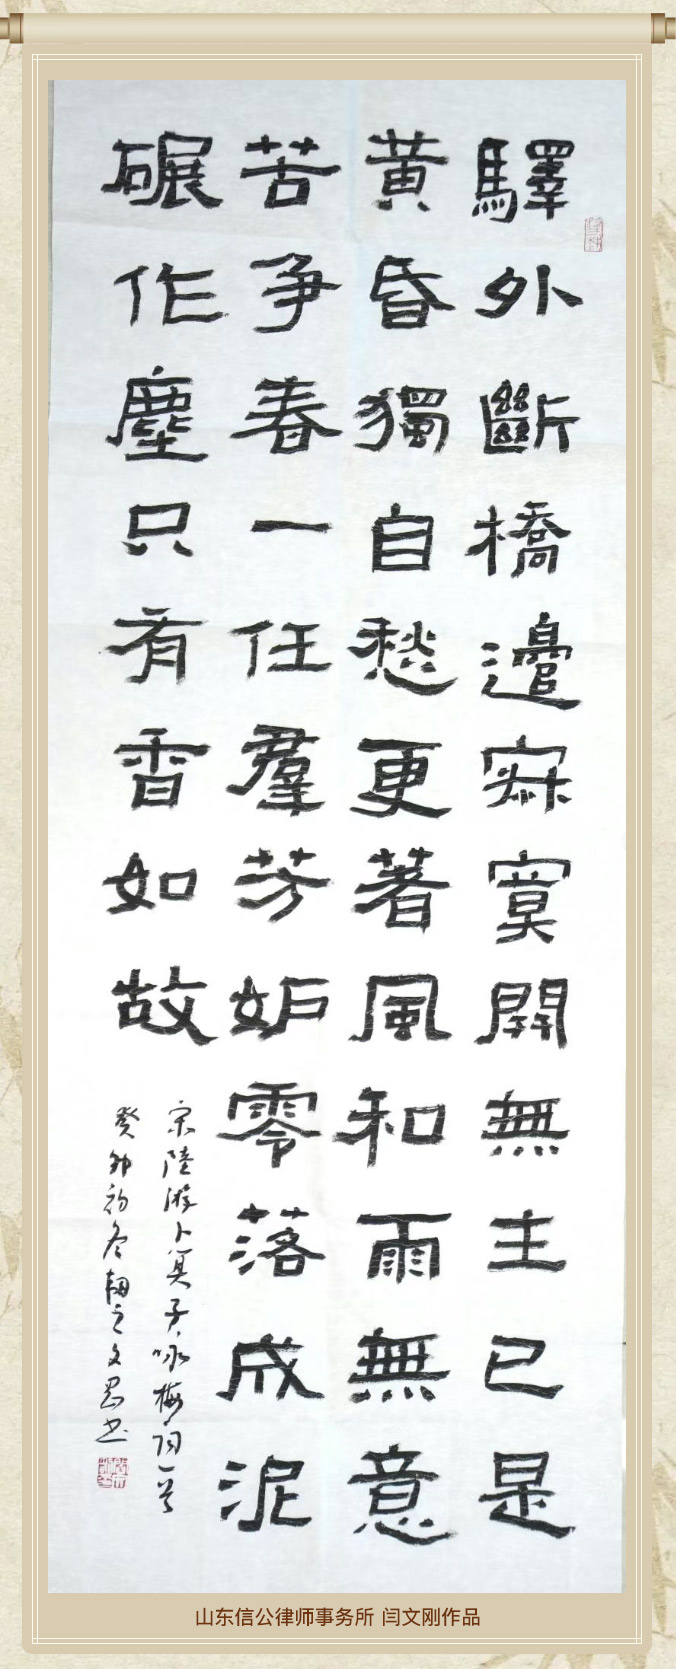 驛外斷橋邊寂寞開無主已是
黄昏獨自愁更著風和雨無意
苦争春一任羣芳妒零落成泥
碾作塵只有香如故
宋陸游卜算子咏梅词一首
癸卯初冬之文书
山东信公律师事务所 闫文刚作品